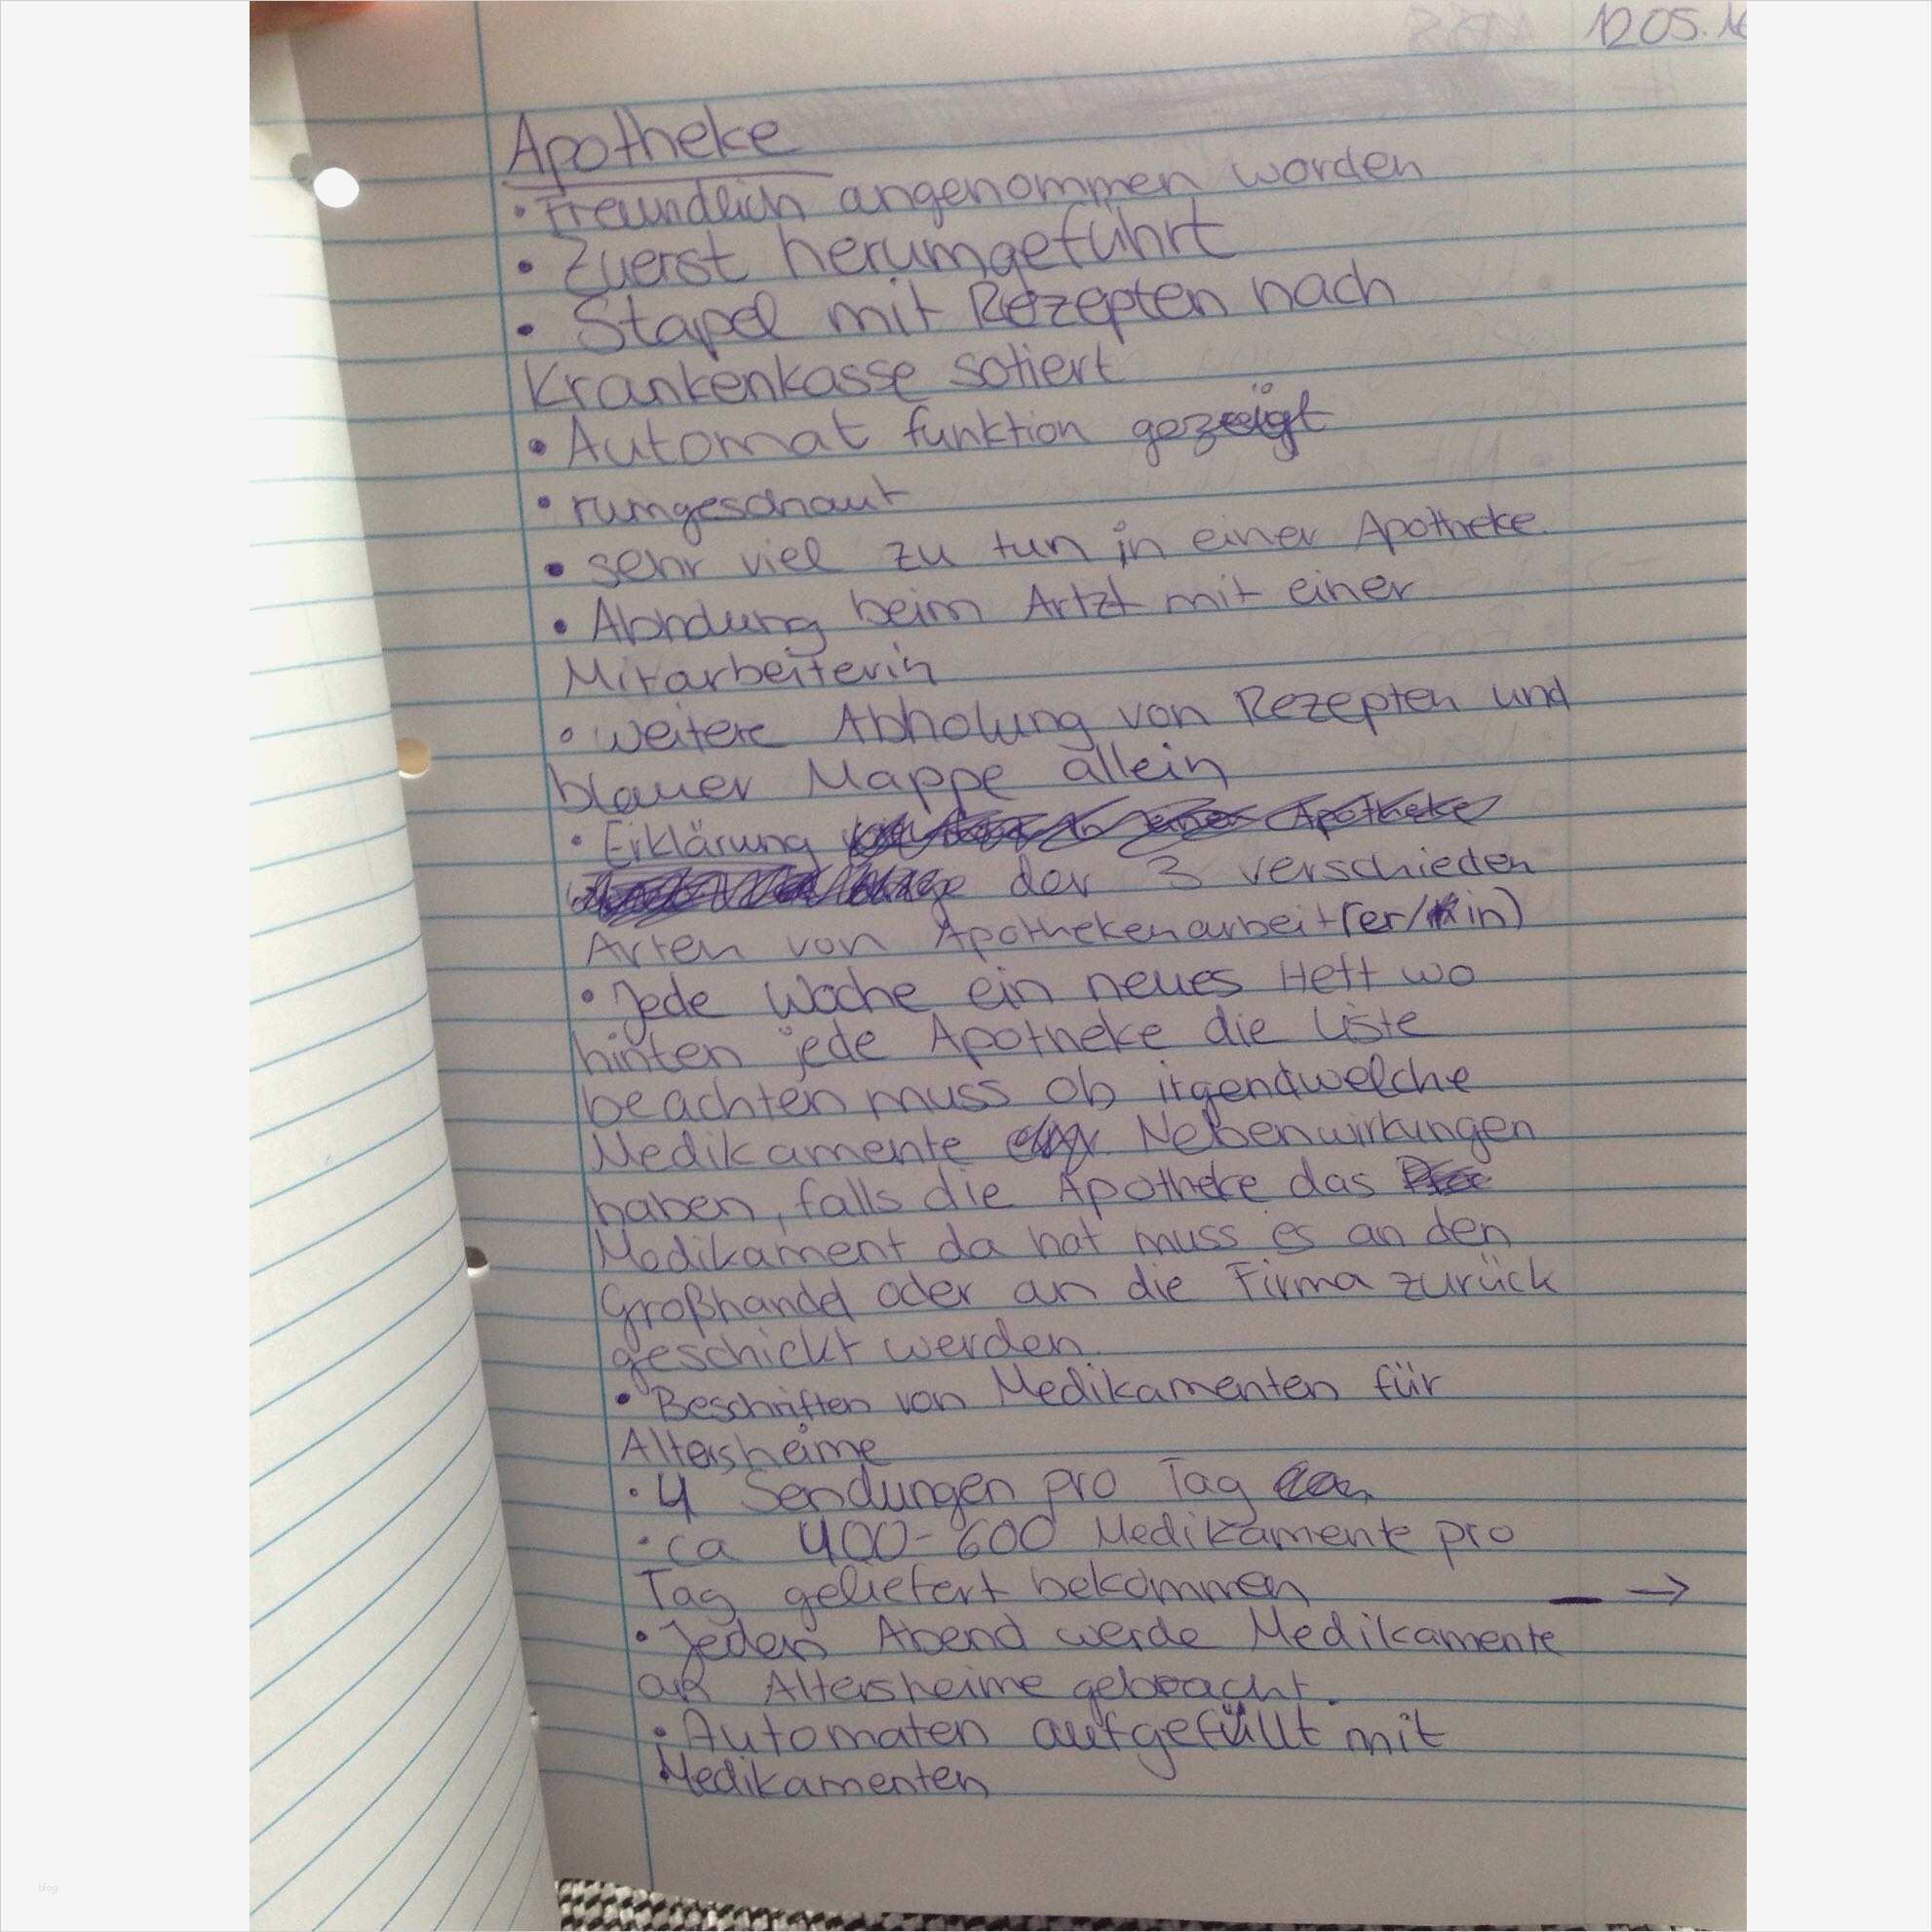 12.05.16
Apotheke
• Freundlich angenommen worden
• Zuerst herumgeführt
• Stapel mit Rezepten nach
Krankenkasse sotiert
• Automat funktion gezeigt
• rumgeschaut
• sehr viel zu tun in einer Apotheke.
• Abholung beim Artzt mit einer
Mitarbeiterin
• weitere Abholung von Rezepten und
blauer Mappe allein
• Erklärung
der 3 verschieden
Arten von Apothekenarbeit(er/in)
• Jede Woche ein neues Heft wo
hinten jede Apotheke die Liste
beachten muss ob irgendwelche
Medikamente Nebenwirkungen
haben, falls die Apotheke das
Medikament da hat muss es an den
Großhandel oder an die Firma zurück
geschickt werden.
• Beschriften von Medikamenten für
Altersheime
• 4 Sendungen pro Tag
• ca 400-600 Medikamente pro
Tag geliefert bekommen — →
• Jeden Abend werde Medikamente
an Altersheime gebracht.
• Automaten aufgefüllt mit
Medikamenten
blog